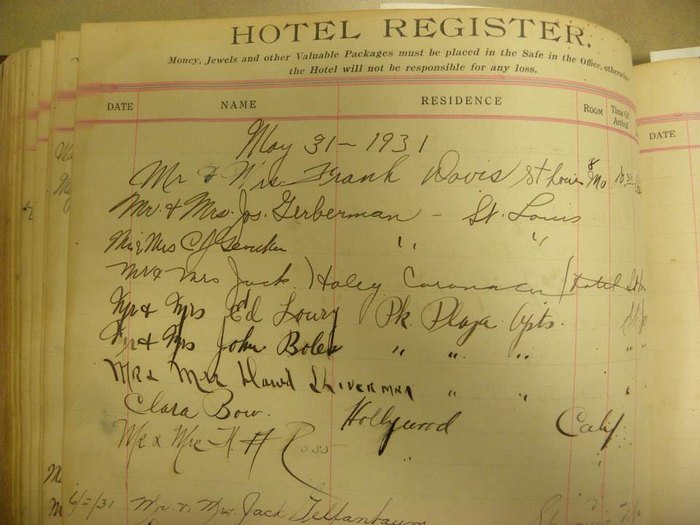 HOTEL REGISTER.
Money, Jewels and other Valuable Packages must be placed in the Safe in the Office, otherwise
the Hotel will not be responsible for any loss.
DATE NAME RESIDENCE ROOM Time Of Arrival DATE
May 31 - 1931
Mr & Mrs. Frank Davis St Louis Mo
Mr. & Mrs. Jos. Gerberman - St. Louis
Mr & Mrs C J " "
Mr & Mrs Jack Haley Coronado Hotel St
Mr & Mrs Ed Lowry Pk. Plaza Apts.
Mr & Mrs John Boles " " " "
Mr & Mrs " " "
Clara Bow. Hollywood Calif
Mr & Mrs H Ross
6/2/31 Mr. & Mrs. Jack